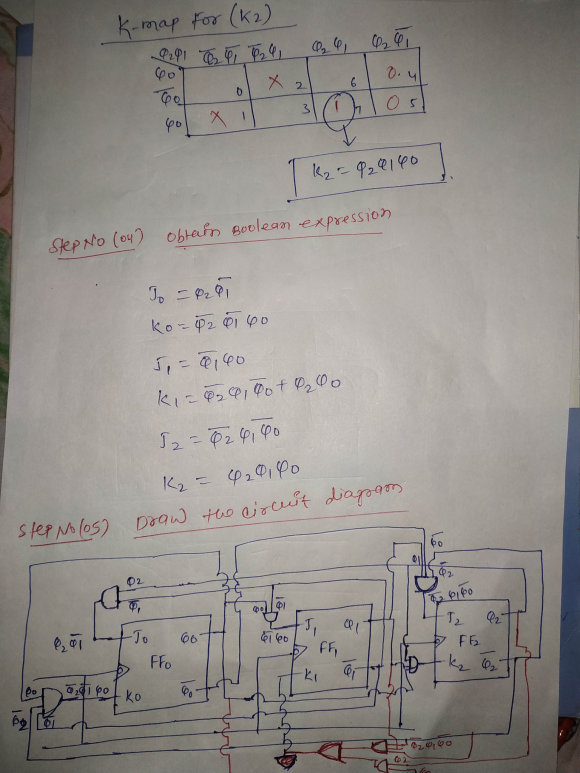 K-map for (K2)
φ2φ1 φ̅2φ̅1 φ̅2φ1 φ2φ1 φ2φ̅1
φ0
φ̅0 0 X 2 6 0 4
φ0 X 1 3 1 7 0 5
K2 = φ2φ1φ0
Step No (04) Obtain Boolean expression
J0 = φ2φ̅1
K0 = φ̅2 φ̅1 φ0
J1 = φ̅1φ0
K1 = φ̅2φ1φ̅0 + φ2φ0
J2 = φ̅2φ1φ̅0
K2 = φ2φ1φ0
Step No (05) Draw the circuit diagram
φ̅0
φ2 φ1 φ̅2
φ̅1 φ0 φ̅1 φ̅2φ1φ̅0
φ2φ̅1 J0 φ0 φ̅1φ0 J1 φ1 J2 φ2
FF0 FF1 FF2
φ0 φ̅2φ̅1φ0 K0 φ̅0 K1 φ̅1 K2 φ̅2
φ̅2 φ̅1
φ̅2φ1φ̅0
φ2